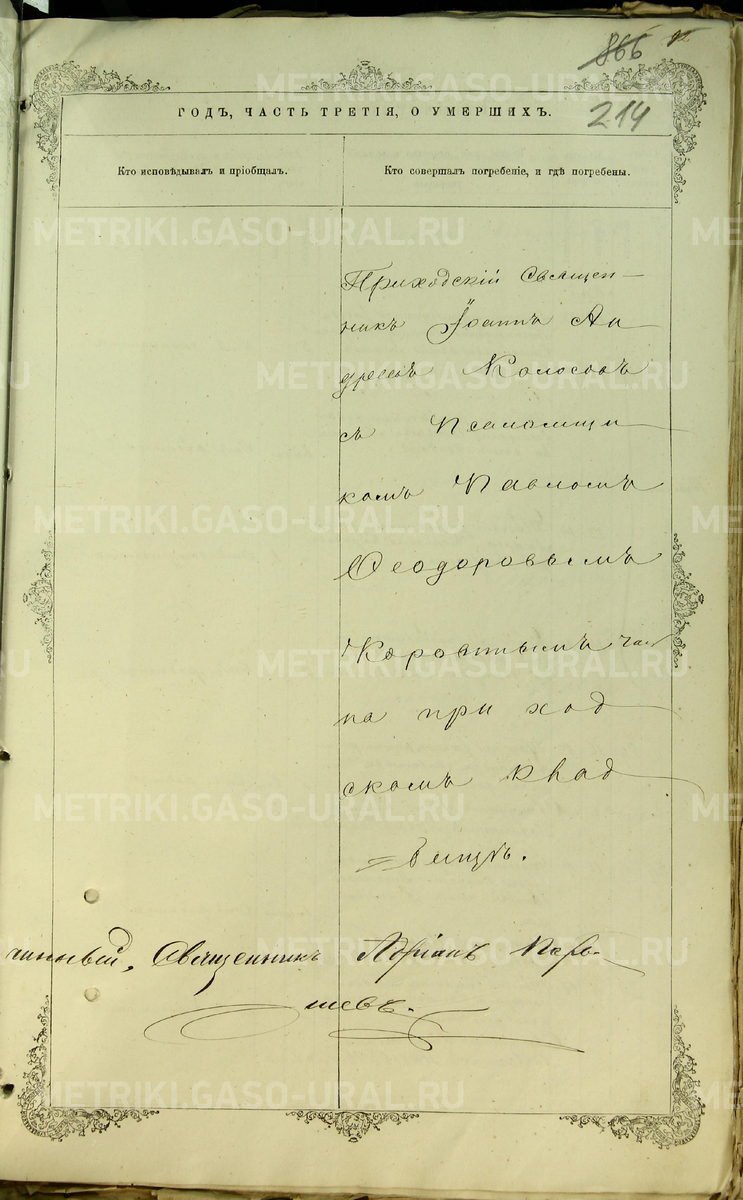 866
214
ГОДЪ, ЧАСТЬ ТРЕТІЯ, О УМЕРШИХЪ.
Кто исповѣдывалъ и пріобщалъ.
Кто совершалъ погребеніе, и гдѣ погребены.
Приходскій Священ—
никъ Іоаннъ Ан
дреевъ Колосовъ
съ Псаломщи
комъ Павломъ
Ѳеодоровымъ
на приход
скомъ клад
бищѣ.
чинный, Священникъ Адріанъ
METRIKI.GASO-URAL.RU